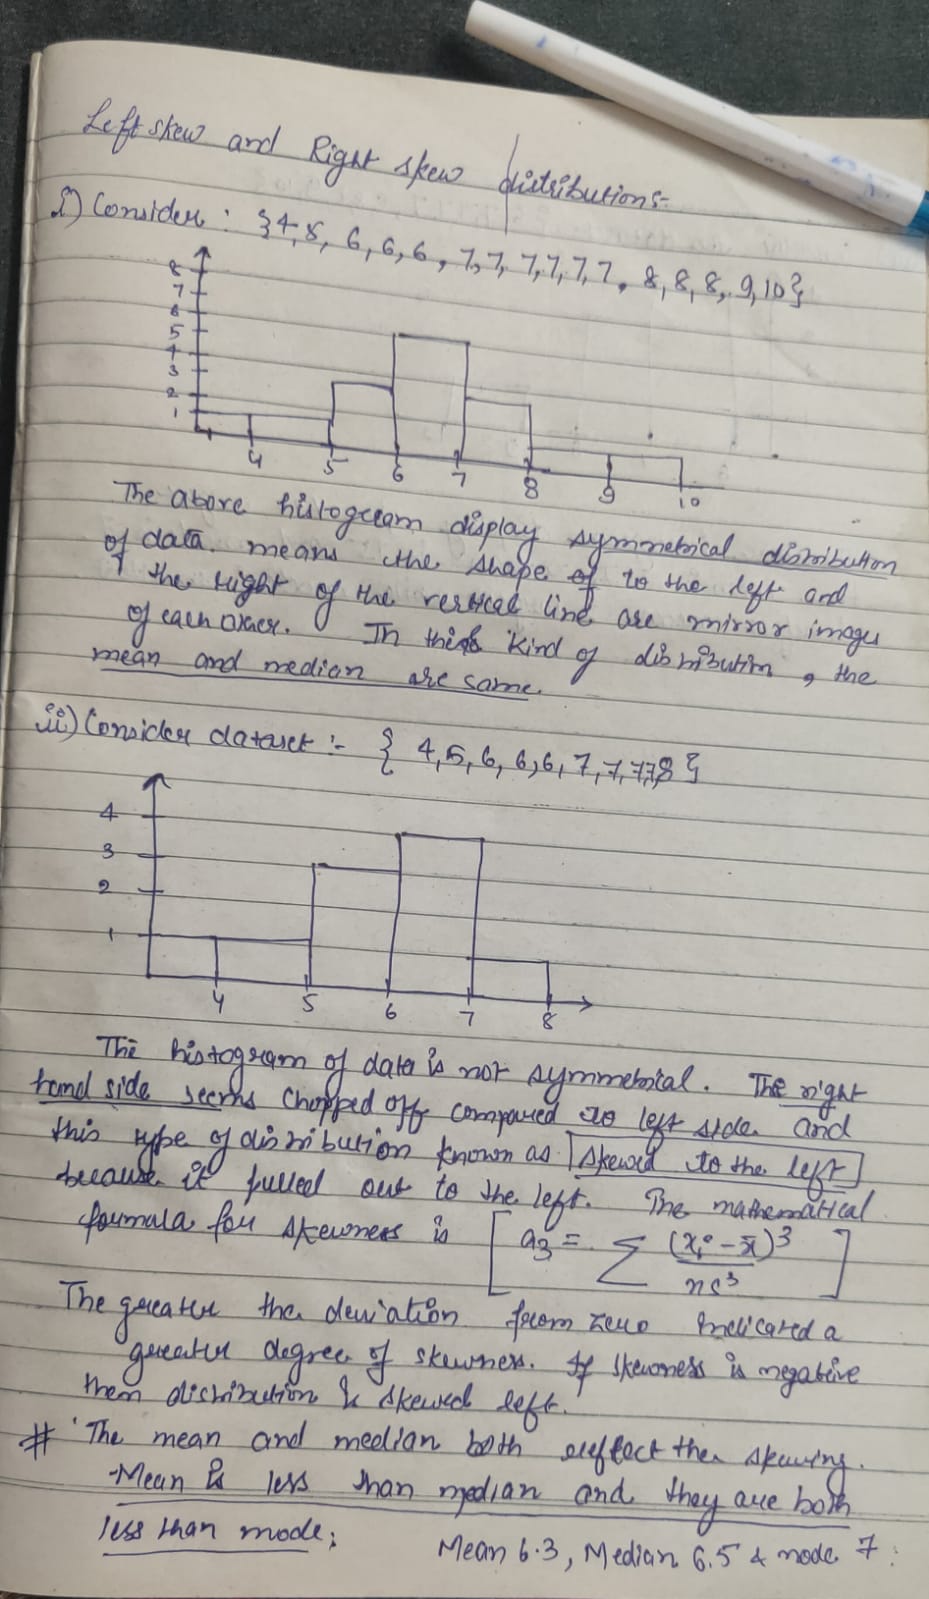 Left skew and Right skew distributions:-
i) Consider : {4,5, 6,6,6, 7,7, 7,7,7,7, 8,8,8, 9,10}
8
7
6
5
4
3
2
1
4 5 6 7 8 9 10
The above histogram display symmetrical distribution
of data. means the shape of to the left and
the right of the vertical line are mirror images
of each other. In this kind of distribution, the
mean and median are same.
ii) Consider dataset :- { 4,5,6,6,6,7,7,7,7,8 }
4
3
2
1
4 5 6 7 8
The histogram of data is not symmetrical. The right
hand side seems chopped off compared to left side and
this type of distribution known as skewed to the left
because it pulled out to the left. The mathematical
formula for skewness is [a3 = Σ (xi-x̄)³/ns³]
The greater the deviation from zero indicated a
greater degree of skewness. If skewness is negative
then distribution is skewed left.
# The mean and median both reflect the skewing.
-Mean is less than median and they are both
less than mode;
Mean 6.3, Median 6.5 & mode 7.